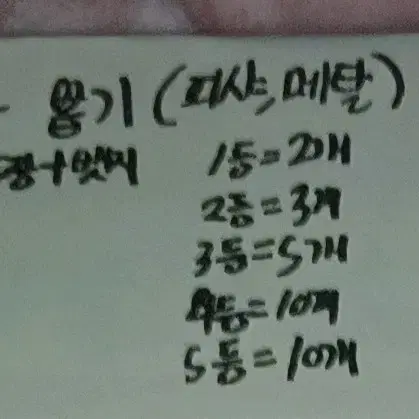 - 뽑기 (피샤, 메탈)
장+밧지 1등=2개
2등=3개
3등=5개
4등=10개
5등=10개